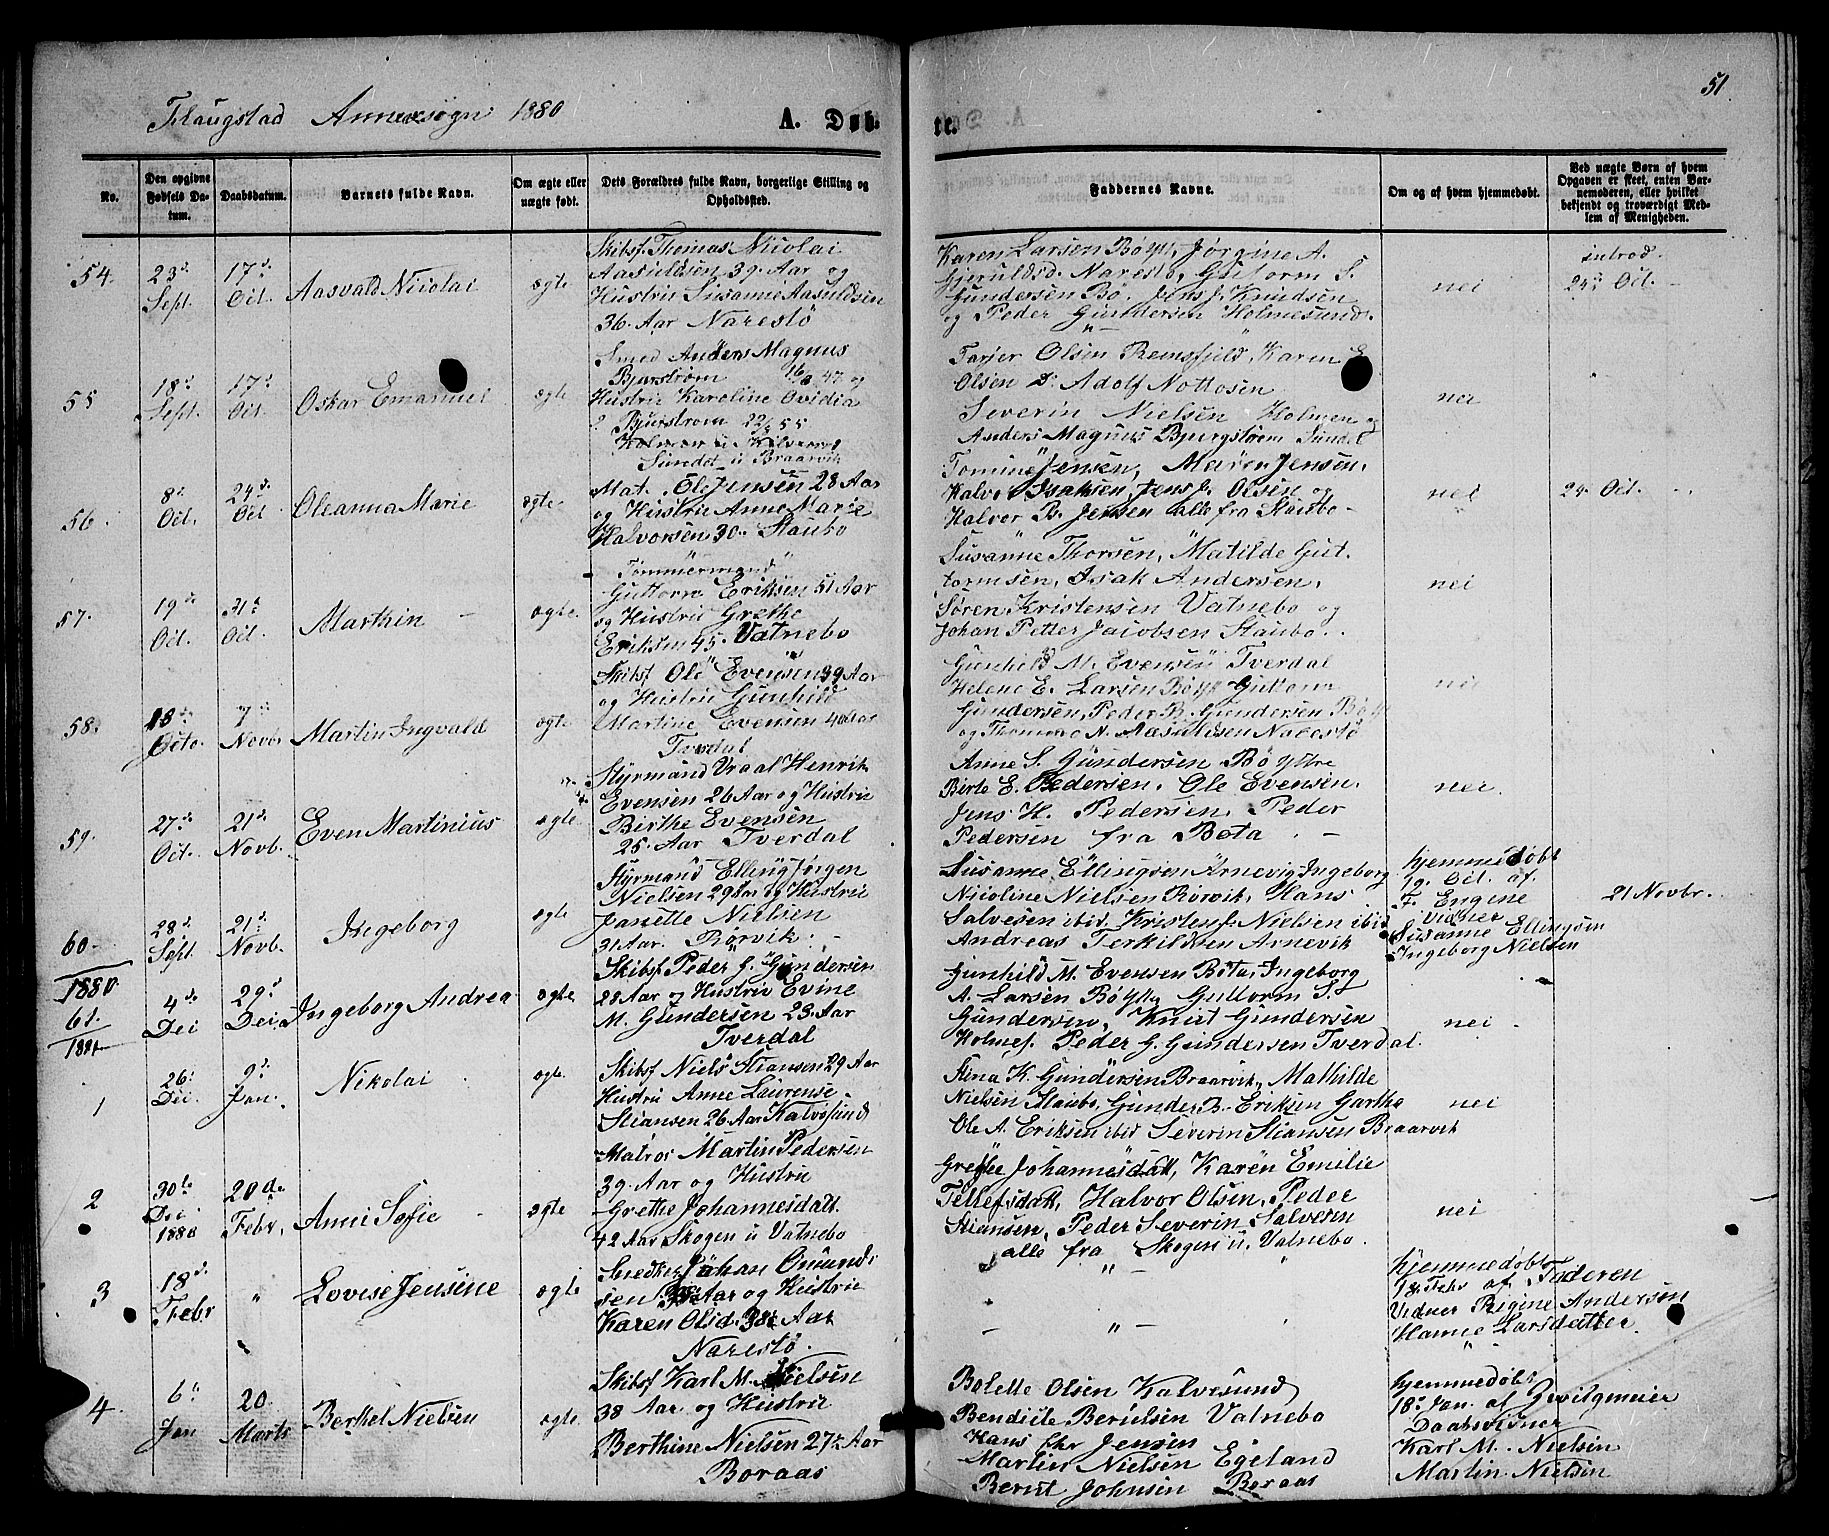 51.
Flaugstad Annexsogn 1880
A. Døb
te.
No.
Den opgivne Fødsels Datum.
Daabsdatum.
Barnets fulde Navn.
Om ægte eller uægte født.
Dets Forældres fulde Navn, borgerlige Stilling og Opholdssted.
Faddernes Navne.
Om og af hvem hjemmedøbt.
Ved uægte Børn af hvem Opgaven er skeet, enten Barnemoderen, eller hvilket bekjendt og troværdigt Medlem af Menigheden.
54. 23d Sept. 17d Oct. Aasvald Nicolai ægte
Skibsf. Thomas Nicolai
Aasuldsen 39. Aar og
Hustru Susanne Aasuldsen
36. Aar Narestö
Karen Larsen Bø, Jørgine A.
Gjeruldsd. Narestø, Guttorm S.
Gundersen Bø. Jens J. Knudsen
og Peder Gundersen Holmesund.
nei
introd.
24d Oct.
55 18d Sept. 17d Oct. Oskar Emanuel ægte
Smed Anders Magnus
Bjurstrøm 16/8 47 og
Hustru Karoline Ovidia
Bjurstrom 22/5 55
Sundet u Braarvik
Tarjer Olsen Remsfjeld, Karen E
Olsen Adolf Nottosen
Severin Nielsen Holmen og
Anders Magnus Bjurgstøem Sundet
nei
56. 8d Oct. 24d Oct Oleanna Marie ægte
Mat. Ole Jensen 28 Aar
og Hustru Anne Marie
Halvorsen 30. Staubo
Tomine Jensen, Maren Jensen.
Halvor Isaksen, Jens J. Olsen og
Halvor B. Jensen alle fra Staubo
nei
24 Oct.
57. 19d Oct. 31d Oct. Marthin ægte
Tømmermand
Guttorm Eriksen 51 Aar
og Hustru Grethe
Eriksen 45. Vatnebo
Susanne Thorsen, Matilde Gut-
tormsen, Isak Andersen,
Søren Kristensen Vatnebo og
Johan Petter Jacobsen Staubo.
nei
58. 18de Octo. 7de Novbr Martin Ingvald ægte
Skibsf Ole Evensen 39 Aar
og Hustru Gunhild
Martine Evensen 40 Aar
Tverdal
Gunhild M. Evensen Tverdal
Helene E. Larsen Bø Guttorm
Gundersen, Peder B. Gundersen
og Thomas N. Aasuldsen Narestø
nei
59. 27de Oct. 21d Novb. Even Martinius ægte
Styrmand Vraal Henrik
Evensen 26 Aar og Hustru
Birthe Evensen
25. Aar Tverdal
Anne S. Gundersen
Birte E. Pedersen. Ole Evensen.
Jens H. Pedersen. Peder
Pedersen fra Bota
nei.
60. 28d Sept. 21d Novb. Ingeborg ægte
Styrmand Elling Jørgen
Nielsen 29 Aar og Hustru
Janette Nielsen
31 Aar. Rørvik.
Susanne Ellingsen Arnevig Ingeborg
Nicoline Nielsen Rørvik, Hans
Salvesen ibid Kristen J. Nielsen ibid
Andreas Terkildsen Arnevik
hjemmedøbt
19. Oct. af
F. Engine
Vidner
Susanne Ellingsen
Ingeborg Nielsen
21 Novbr.
1880
61. 4de Dec 29d Dec. Ingeborg Andrea ægte
Skibsf Peder G. Gundersen
28 Aar og Hustru Evine
M. Gundersen 23. Aar
Tverdal
Gunhild M. Evensen Bota, Ingeborg
A. Larsen Guttorm S.
Gundersen, Knut Gundersen
Holmes. Peder G. Gundersen Tverdal.
nei
1881
1 26d Dec. 9d Jan. Nikolai ægte
Skibsf Niels Stiansen 29 Aar
Hustru Anne Laurense
Stiansen 26 Aar Kalvøsund
Stina K. Gundersen Braarvik, Mathilde
Nielsen Staubo, Gunder B. Eriksen Gartha
Ole A. Eriksen ibid Severin Stiansen Braarvik
nei
2 30te Dec 1880 20de Febr. Anne Sofie ægte
Matros Martin Pedersen
39. Aar og Hustru
Grethe Johannesdatt.
42 Aar Skogen u Vatnebo
Grethe Johannesdatt, Karen Emilie
Tellefsdatt, Halvor Olsen, Peder
Stiansen, Peder Severin Salvesen
alle fra Skogen u. Vatnebo.
nei
3 18d Febr " Lovise Jensine ægte
Snedker Johan Omunds
sen Aar og Hustru
Karen Olsd. 38 Aar
Narestö.
— " —
hjemmedøbt
18. Febr af Faderen
Vidner Regine Andersøn
Hanne Larsdatter.
4. 6d Jan 20. Marts Berthel Nielsen ægte
Skibsf Karl M. Nielsen
38 Aar og Hustru
Berthine Nielsen 27 Aar
Boraas
Bolette Olsen Kalvesund
Bendicte Berntsen Vatnebo
Hans Chr Jensen
Martin Nielsen Egeland
Bernt Johnsen Boraas
hjemmedøbt
18. Jan. af Zwilgmeier
Daabsvidner
Karl M. Nielsen
Martin Nielsen